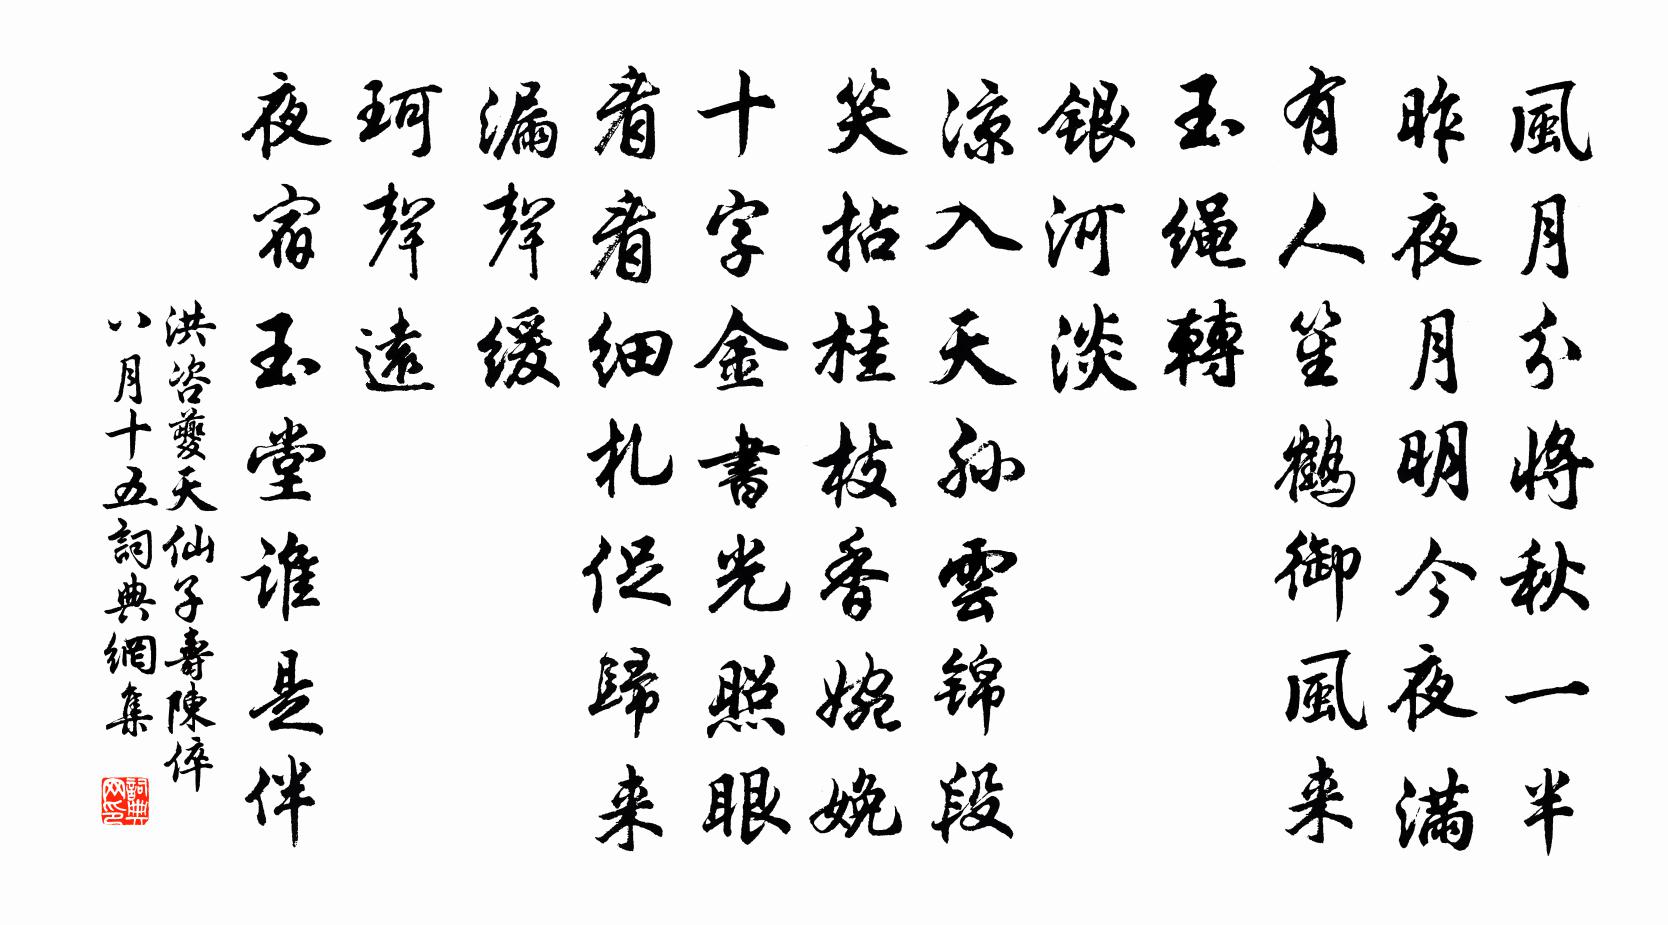 風月分將秋一半
昨夜月明今夜滿
有人笙鶴御風来
玉繩轉
銀河淡
涼入天孫雲錦段
笑拈桂枝香婉娩
十字金書光照眼
看看細札促歸来
漏聲緩
珂聲遠
夜宿玉堂誰是伴
洪咨夔天仙子壽陳倅
八月十五詞典網集
詞典
网印